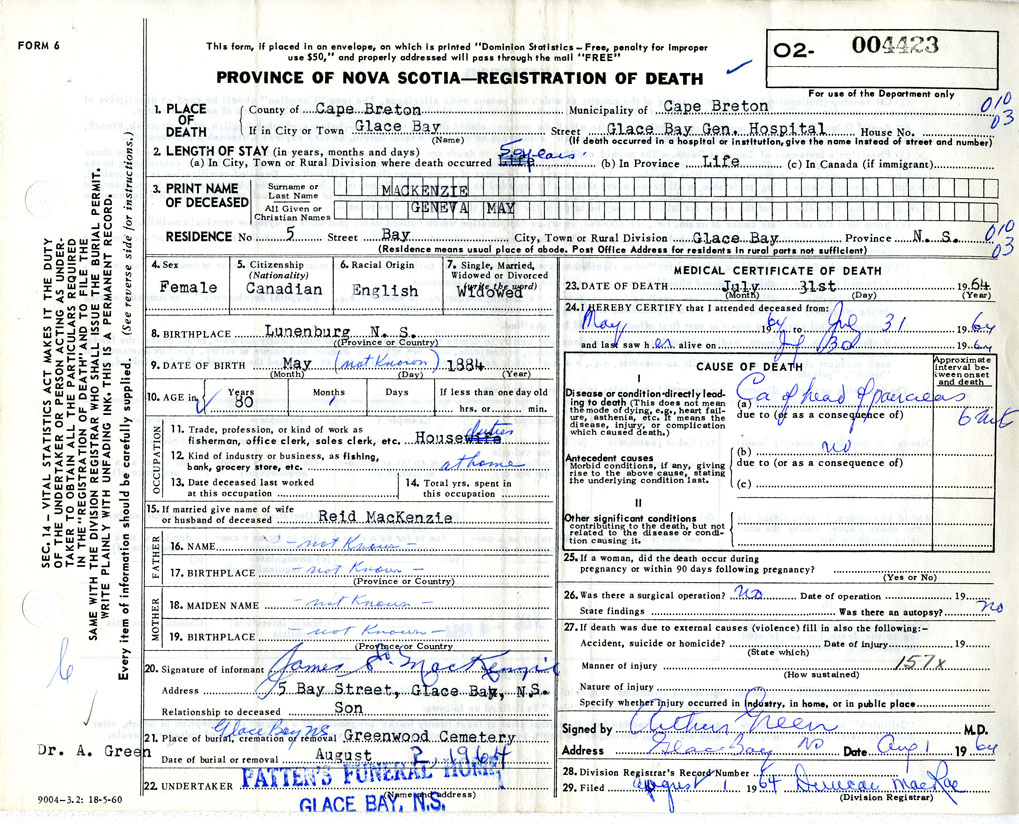 FORM 6
This form, if placed in an envelope, on which is printed "Dominion Statistics – Free, penalty for improper
use $50," and properly addressed will pass through the mail "FREE"
PROVINCE OF NOVA SCOTIA—REGISTRATION OF DEATH
O2- 004423
For use of the Department only
SEC. 14 – VITAL STATISTICS ACT MAKES IT THE DUTY
OF THE UNDERTAKER OR PERSON ACTING AS UNDER-
TAKER TO OBTAIN ALL THE PARTICULARS REQUIRED
IN THE "REGISTRATION OF DEATH" AND TO FILE THE
SAME WITH THE DIVISION REGISTRAR WHO SHALL ISSUE THE BURIAL PERMIT.
WRITE PLAINLY WITH UNFADING INK. THIS IS A PERMANENT RECORD.
Every item of information should be carefully supplied. (See reverse side for instructions.)
1. PLACE OF DEATH
County of Cape Breton Municipality of Cape Breton 010
03
If in City or Town Glace Bay Street Glace Bay Gen. Hospital House No.
(Name) (If death occurred in a hospital or institution, give the name instead of street and number)
2. LENGTH OF STAY (in years, months and days)
(a) In City, Town or Rural Division where death occurred Life 50 years. (b) In Province Life (c) In Canada (if immigrant)
3. PRINT NAME OF DECEASED
Surname or Last Name MACKENZIE
All Given or Christian Names GENEVA MAY
RESIDENCE No 5 Street Bay City, Town or Rural Division Glace Bay Province N. S. 010
03
(Residence means usual place of abode. Post Office Address for residents in rural parts not sufficient)
4. Sex
Female
5. Citizenship
(Nationality)
Canadian
6. Racial Origin
English
7. Single, Married,
Widowed or Divorced
(write the word)
Widowed
8. BIRTHPLACE Lunenburg N. S.
(Province or County)
9. DATE OF BIRTH May (not Known) 1884
(Month) (Day) (Year)
10. AGE in Years Months Days If less than one day old
80 hrs. or min.
OCCUPATION
11. Trade, profession, or kind of work as
fisherman, office clerk, sales clerk, etc. Housewife duties
12. Kind of industry or business, as fishing,
bank, grocery store, etc. at home
13. Date deceased last worked
at this occupation
14. Total yrs. spent in
this occupation
15. If married give name of wife
or husband of deceased Reid MacKenzie
FATHER
16. NAME - not Known -
17. BIRTHPLACE - not Known -
(Province or County)
MOTHER
18. MAIDEN NAME - not Known -
19. BIRTHPLACE - not Known -
(Province or County)
20. Signature of informant James H. MacKenzie
Address 5 Bay Street, Glace Bay, N.S.
Relationship to deceased Son
21. Place of burial, cremation or removal Glace Bay NS Greenwood Cemetery
Date of burial or removal August 2, 1964
22. UNDERTAKER PATTEN'S FUNERAL HOME
(Name and address)
GLACE BAY, N.S.
6
Dr. A. Green
9004–3.2: 18-5-60
MEDICAL CERTIFICATE OF DEATH
23. DATE OF DEATH July 31st 1964
(Month) (Day) (Year)
24. I HEREBY CERTIFY that I attended deceased from:
May 1964 to July 31 1964
and last saw her alive on 1964
CAUSE OF DEATH
Approximate
interval be-
tween onset
and death
I
Disease or condition-directly lead-
ing to death (This does not mean
the mode of dying, e.g., heart fail-
ure, asthenia, etc. It means the
disease, injury, or complication
which caused death.)
(a) Ca of head of pancreas
due to (or as a consequence of)
Antecedent causes
Morbid conditions, if any, giving
rise to the above cause, stating
the underlying condition last.
(b) no
due to (or as a consequence of)
(c)
II
Other significant conditions
contributing to the death, but not
related to the disease or condi-
tion causing it.
25. If a woman, did the death occur during
pregnancy or within 90 days following pregnancy?
(Yes or No)
26. Was there a surgical operation? no Date of operation 19
State findings Was there an autopsy? no
27. If death was due to external causes (violence) fill in also the following:–
Accident, suicide or homicide? Date of injury 19
(State which)
Manner of injury 157x
(How sustained)
Nature of injury
Specify whether injury occurred in industry, in home, or in public place
Signed by Arthur Green M.D.
Address Glace Bay NS Date Aug 1 1964
28. Division Registrar's Record Number
29. Filed August 1 1964 Duncan MacRae
(Division Registrar)